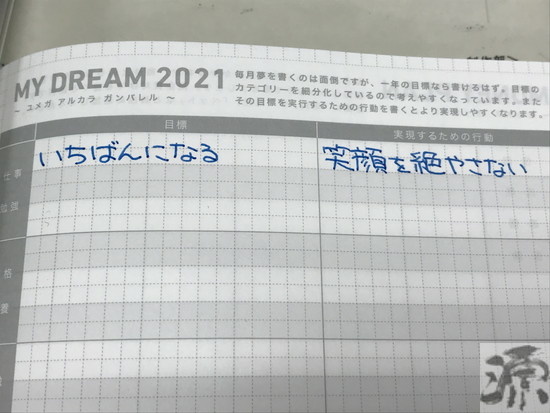 MY DREAM 2021
〜 ユメガ アルカラ ガンバレル 〜
毎月夢を書くのは面倒ですが、一年の目標なら書けるはず。目標の
カテゴリーを細分化しているので考えやすくなっています。また
その目標を実行するための行動を書くとより実現しやすくなります。
目標
実現するための行動
仕事
勉強
いちばんになる
笑顔を絶やさない
格
養
源